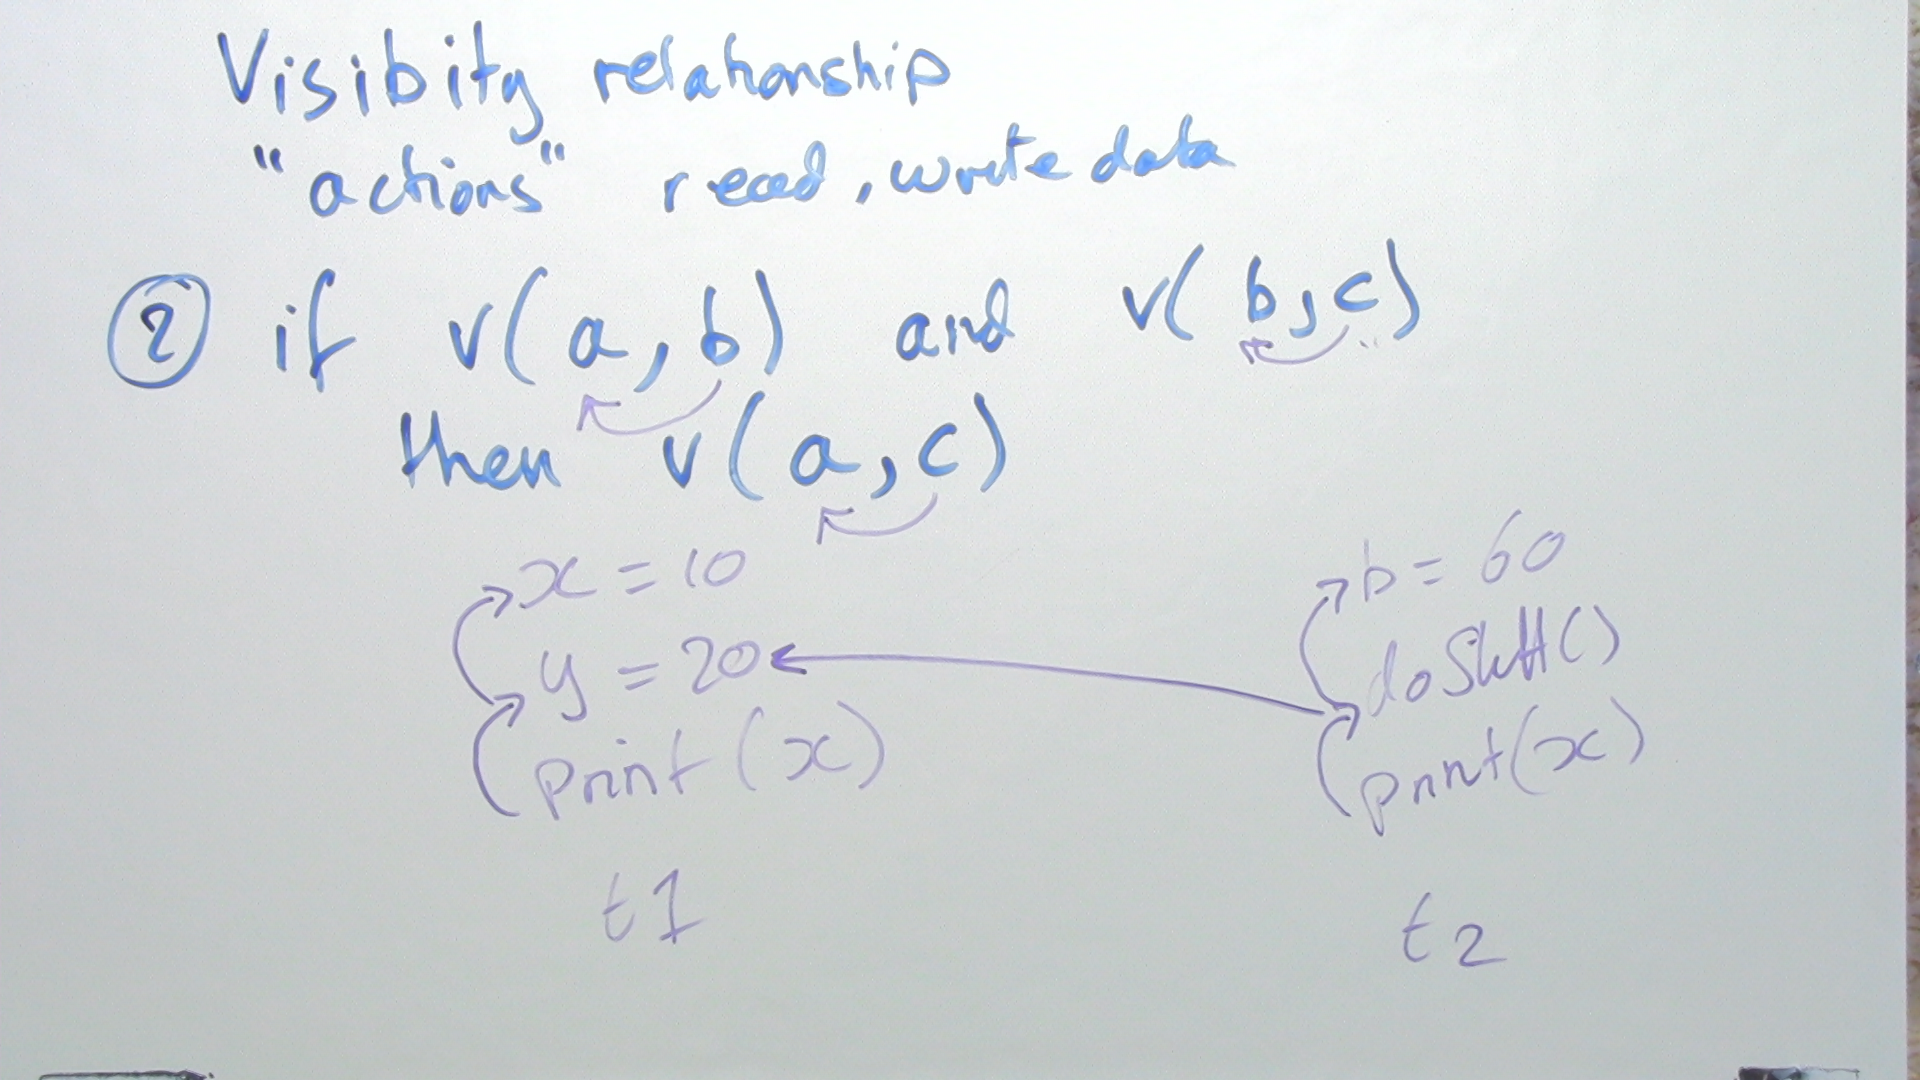 Visibity relationship
"actions" read, write data
② if v(a, b) and v(b, c)
then v(a, c)
x = 10
y = 20
print(x)
t1
b = 60
print(x)
t2